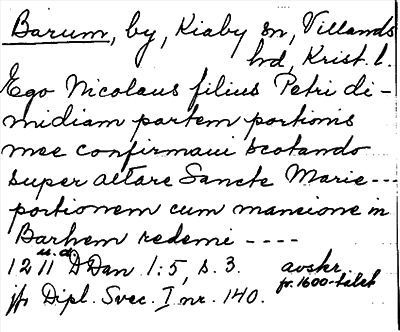 Barum, by, Kiaby sn, Villands
hd, Krist. l.
Ego Nicolaus filius Petri di-
midiam partem portionis
mee confirmaui scotando
super altare Sancte Marie ---
portionem cum mansione in
Barhem redemi ----
u. d.
1211 DDan 1:5, s. 3. avskr.
fr. 1600-talet
jfr Dipl. Svec. I nr. 140.